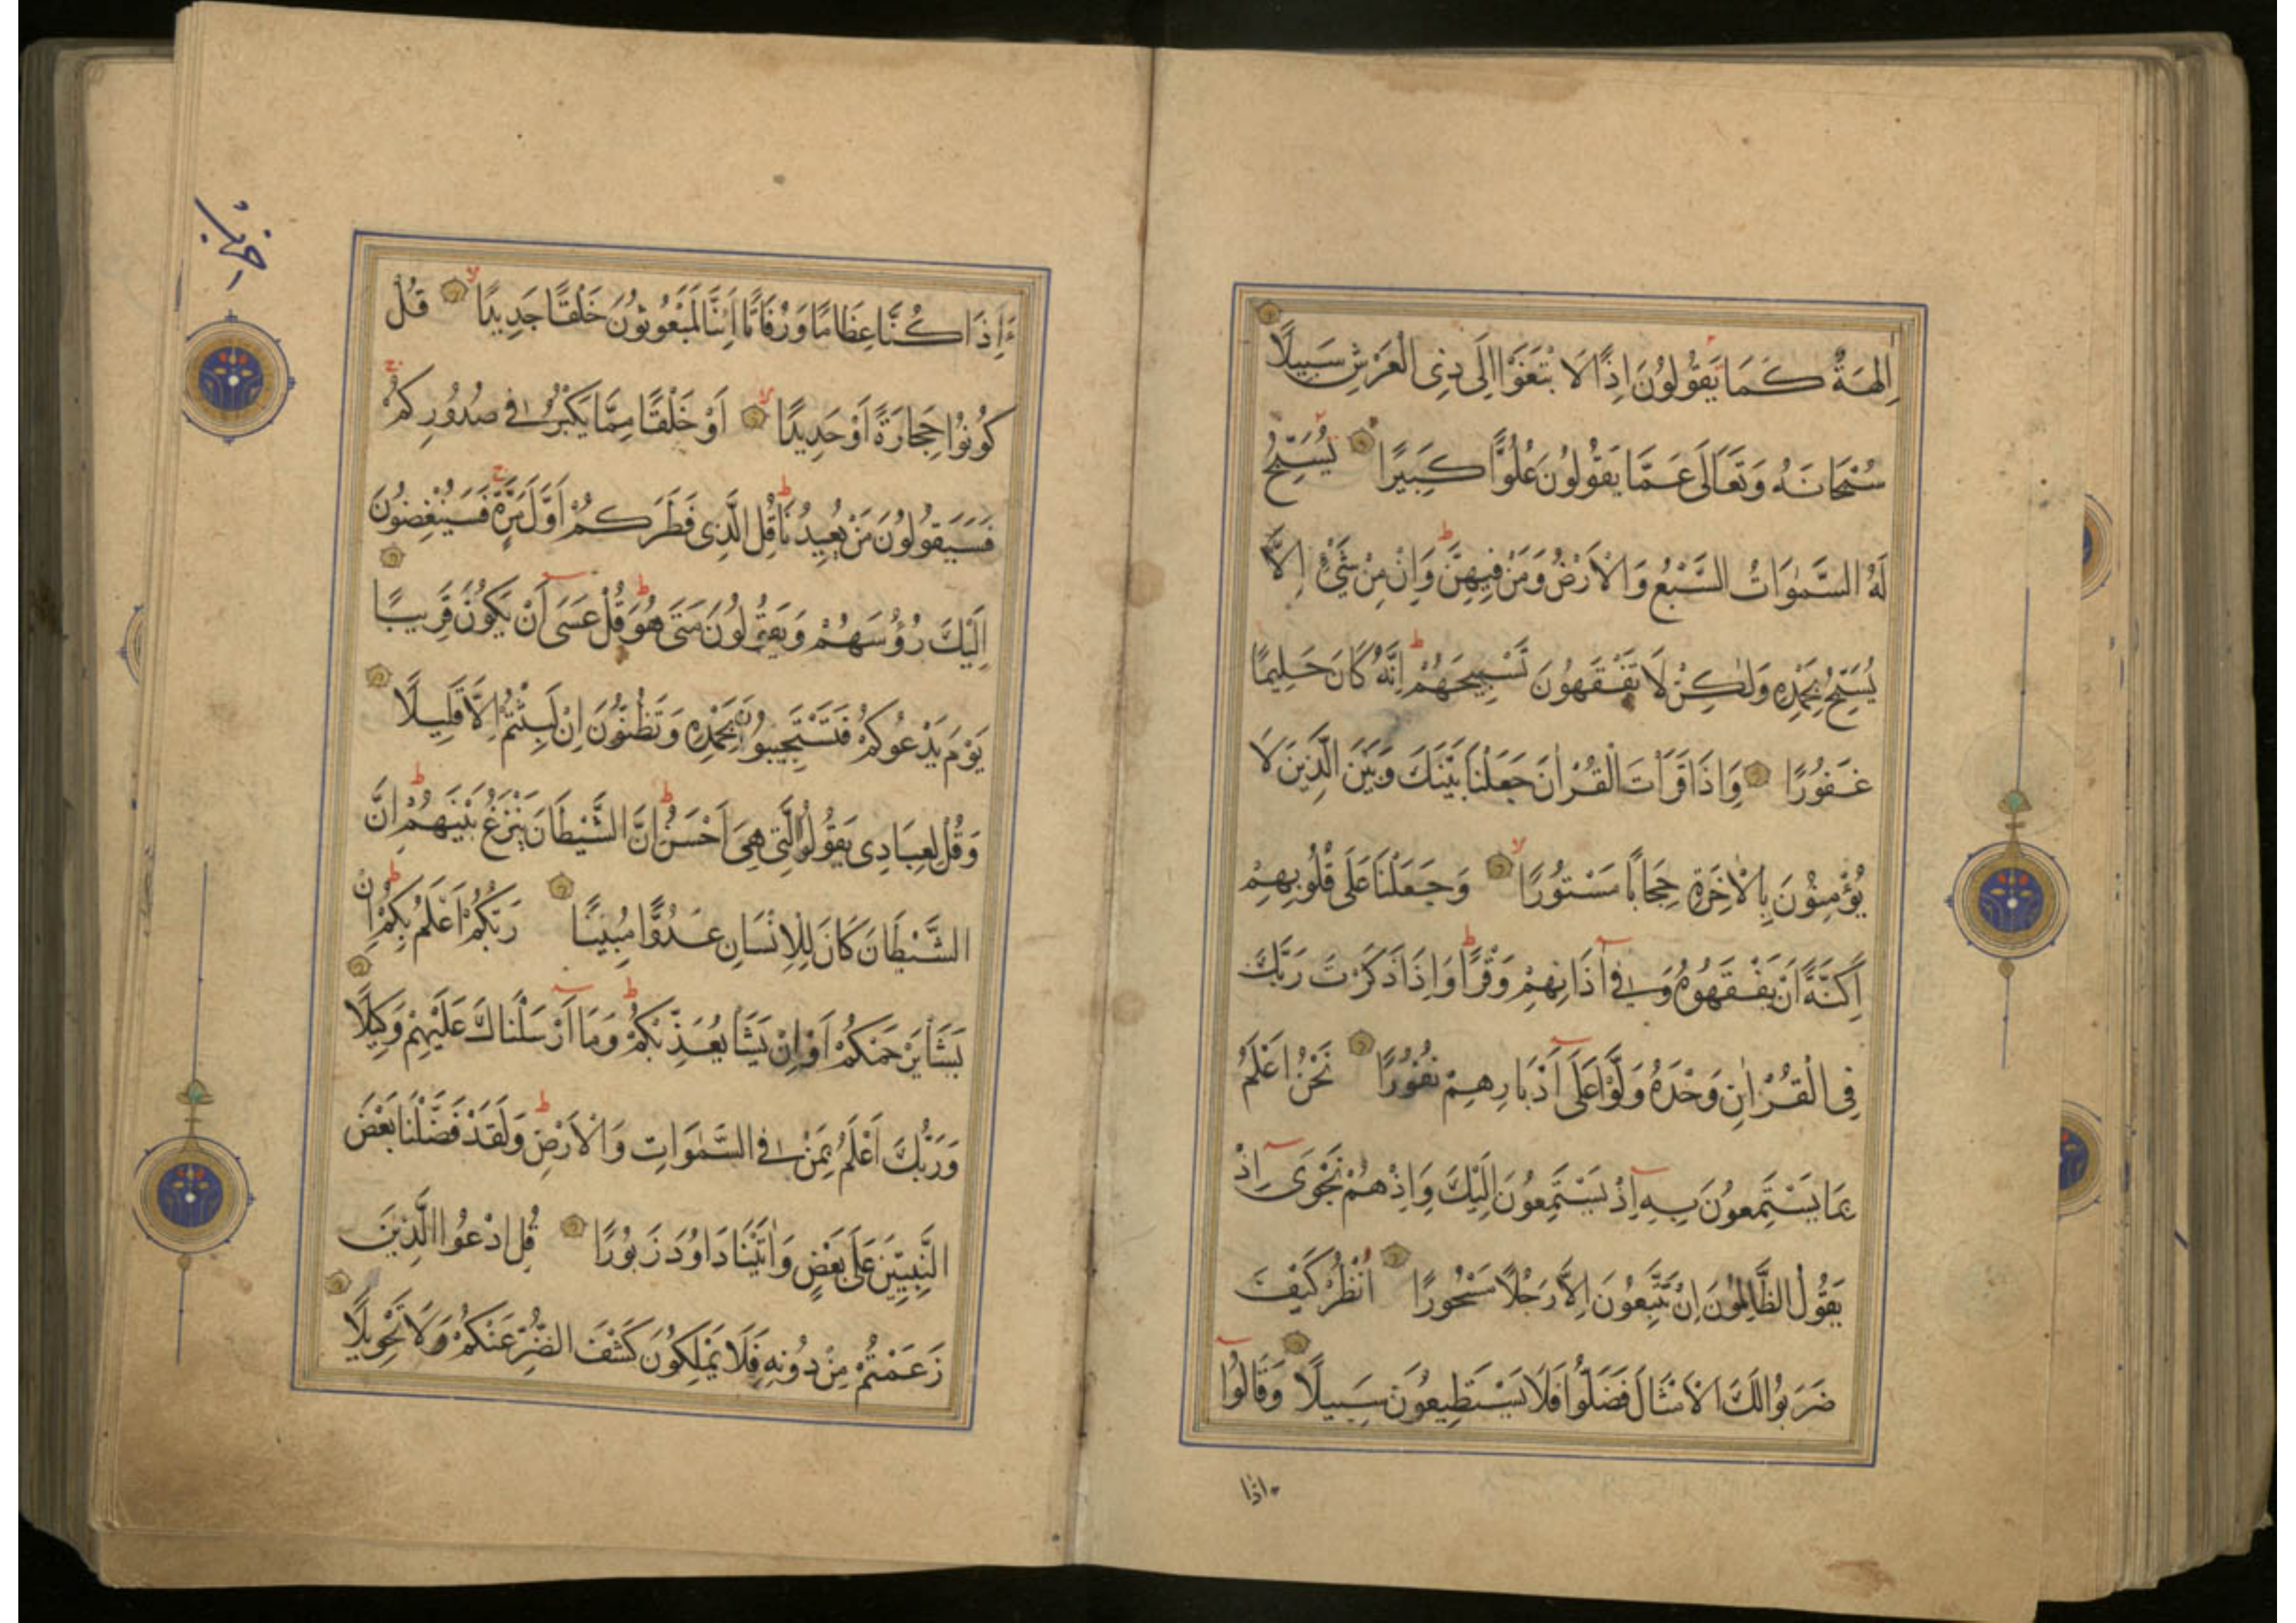 اٰلِهَةٌ كَمَا يَقُولُونَ اِذًا لَا بْتَغَوْا اِلَى ذِى الْعَرْشِ سَبِيلًا
سُبْحَانَهُ وَتَعَالَى عَمَّا يَقُولُونَ عُلُوًّا كَبِيرًا يُسَبِّحُ
لَهُ السَّمٰوَاتُ السَّبْعُ وَالْاَرْضُ وَمَنْ فِيهِنَّ وَاِنْ مِنْ شَيْءٍ اِلَّا
يُسَبِّحُ بِحَمْدِهِ وَلٰكِنْ لَا تَفْقَهُونَ تَسْبِيحَهُمْ اِنَّهُ كَانَ حَلِيمًا
غَفُورًا وَاِذَا قَرَاْتَ الْقُرْاٰنَ جَعَلْنَا بَيْنَكَ وَبَيْنَ الَّذِينَ لَا
يُؤْمِنُونَ بِالْاٰخِرَةِ حِجَابًا مَسْتُورًا وَجَعَلْنَا عَلَى قُلُوبِهِمْ
اَكِنَّةً اَنْ يَفْقَهُوهُ وَفِي آذَانِهِمْ وَقْرًا وَاِذَا ذَكَرْتَ رَبَّكَ
فِي الْقُرْاٰنِ وَحْدَهُ وَلَّوْا عَلَى اَدْبَارِهِمْ نُفُورًا نَحْنُ اَعْلَمُ
بِمَا يَسْتَمِعُونَ بِهِ اِذْ يَسْتَمِعُونَ اِلَيْكَ وَاِذْ هُمْ نَجْوَى اِذْ
يَقُولُ الظَّالِمُونَ اِنْ تَتَّبِعُونَ اِلَّا رَجُلًا مَسْحُورًا اُنْظُرْ كَيْفَ
ضَرَبُوا لَكَ الْاَمْثَالَ فَضَلُّوا فَلَا يَسْتَطِيعُونَ سَبِيلًا وَقَالُوا
ءاذا
ءَاِذَا كُنَّا عِظَامًا وَرُفَاتًا اَئِنَّا لَمَبْعُوثُونَ خَلْقًا جَدِيدًا قُلْ
كُونُوا حِجَارَةً اَوْ حَدِيدًا اَوْ خَلْقًا مِمَّا يَكْبُرُ فِي صُدُورِكُمْ
فَسَيَقُولُونَ مَنْ يُعِيدُنَا قُلِ الَّذِى فَطَرَكُمْ اَوَّلَ مَرَّةٍ فَسَيُنْغِضُونَ
اِلَيْكَ رُؤُسَهُمْ وَيَقُولُونَ مَتَى هُوَ قُلْ عَسَى اَنْ يَكُونَ قَرِيبًا
يَوْمَ يَدْعُوكُمْ فَتَسْتَجِيبُونَ بِحَمْدِهِ وَتَظُنُّونَ اِنْ لَبِثْتُمْ اِلَّا قَلِيلًا
وَقُلْ لِعِبَادِى يَقُولُوا الَّتِى هِيَ اَحْسَنُ اِنَّ الشَّيْطَانَ يَنْزَغُ بَيْنَهُمْ اِنَّ
الشَّيْطَانَ كَانَ لِلْاِنْسَانِ عَدُوًّا مُبِينًا رَبُّكُمْ اَعْلَمُ بِكُمْ اِنْ
يَشَاْ يَرْحَمْكُمْ اَوْ اِنْ يَشَاْ يُعَذِّبْكُمْ وَمَا اَرْسَلْنَاكَ عَلَيْهِمْ وَكِيلًا
وَرَبُّكَ اَعْلَمُ بِمَنْ فِي السَّمٰوَاتِ وَالْاَرْضِ وَلَقَدْ فَضَّلْنَا بَعْضَ
النَّبِيِّينَ عَلَى بَعْضٍ وَاٰتَيْنَا دَاوُدَ زَبُورًا قُلِ ادْعُوا الَّذِينَ
زَعَمْتُمْ مِنْ دُونِهِ فَلَا يَمْلِكُونَ كَشْفَ الضُّرِّ عَنْكُمْ وَلَا تَحْوِيلًا